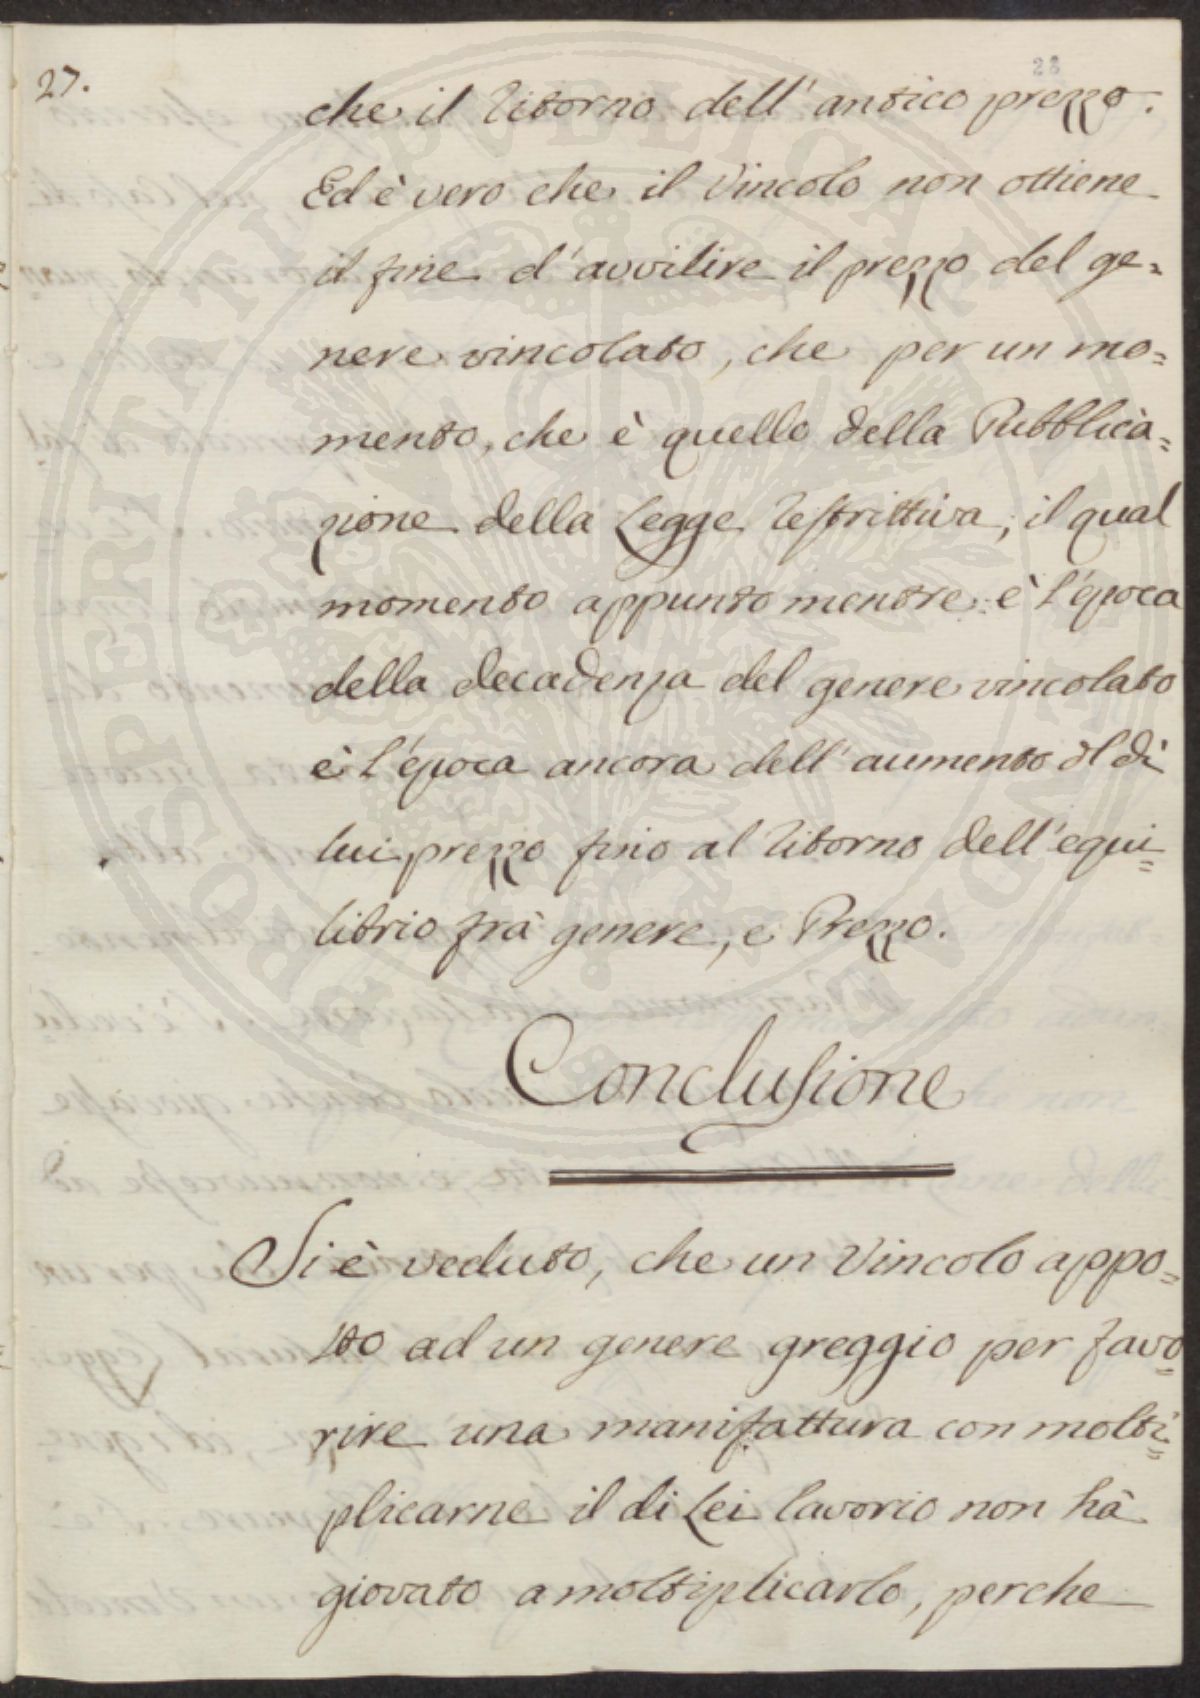 27.
28
che il ritorno dell' antico prezzo.
Ed è vero che il Vincolo non ottiene
il fine d'avvilire il prezzo del ge=
nere vincolato, che per un mo=
mento, che è quello della Pubblica=
zione della Legge restrittiva, il qual
momento appunto mentre è l'época
della decadenza del genere vincolato
è l'época ancora dell'aumento del di
lui prezzo fino al ritorno dell'equi=
librio frà genere, e Prezzo.
Conclusione
Si è veduto, che un Vincolo appo=
sto ad un genere greggio per favo=
rire una manifattura con molti=
plicarne il di Lei lavorio non hà
giovato a moltiplicarlo, perche
PROSPERITATI PUBLICAE AUGENDAE